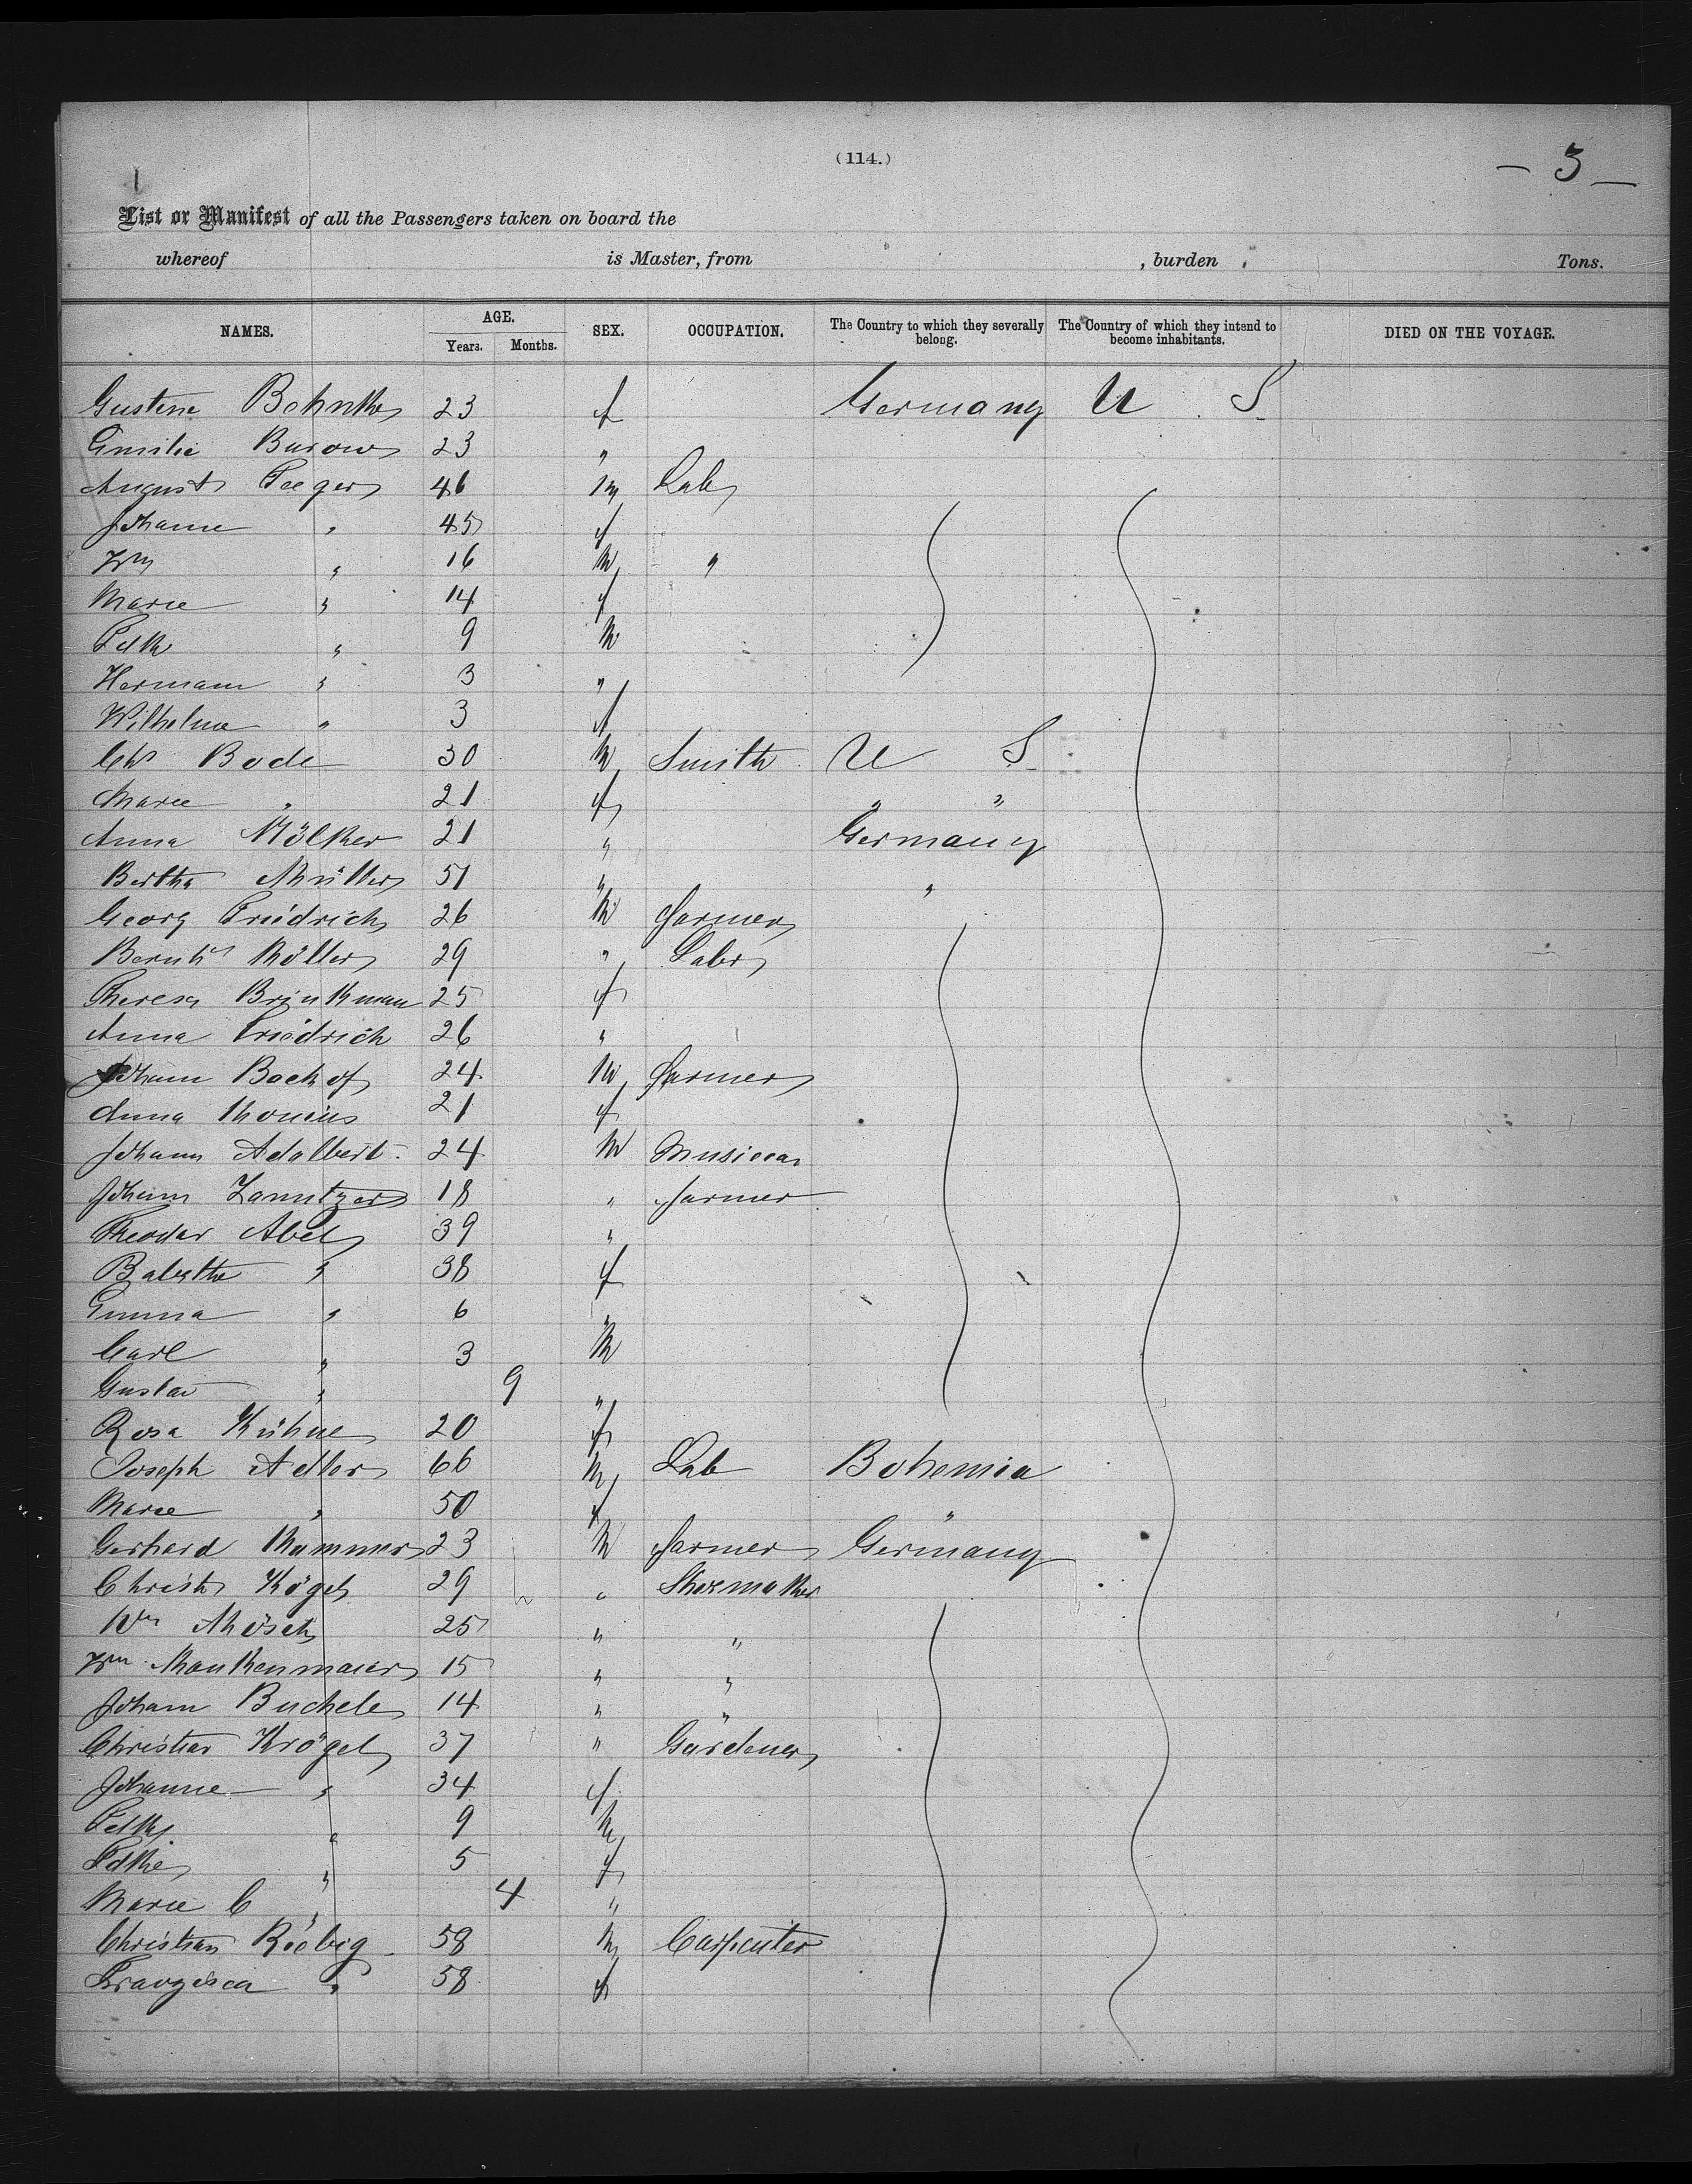 (114.)
– 3 –
List or Manifest of all the Passengers taken on board the
whereof is Master, from , burden Tons.
NAMES. AGE. Years. Months. SEX. OCCUPATION. The Country to which they severally belong. The Country of which they intend to become inhabitants. DIED ON THE VOYAGE.
Gustine Bohnke 23 f Germany U S
Emilie Burow 23 "
August Seeger 46 m Lab
Johanne " 45 f
Wm " 16 m "
Marie " 14 f
Fdk " 9 m
Hermann " 3 "
Wilhelme " 3 f
Chs Bode 30 m Smith U S
Marie " 21 f " "
Anna Mölker 21 " Germany
Bertha Müller 51 " "
Georg Friedrich 26 m farmer
Bernh Möller 29 " Labr
Theresa Brinkman 25 f
Anna Friedrich 26 "
Johann Bockof 24 m farmer
Anna 21 f
Johann Adalbert 24 m Musician
Johann 18 " farmer
Theodor Abel 39 "
Babette " 38 f
Emma " 6 "
Carl " 3 m
Gustav " 9 "
Rosa Kühne 20 f
Joseph Adler 66 m Lab Bohemia
Marie " 50 f "
Gerhard Kammer 23 m farmer Germany
Christ Kögel 29 " Shoemaker
Wm Mösch 25 " "
Wm 15 " "
Johann Buchele 14 " "
Christian Krögel 37 " Gardener
Johanne " 34 f
Fdk " 9 m
Fdke " 5 f
Marie C " 4 "
Christian Röbig 58 m Carpenter
Franziska " 58 f